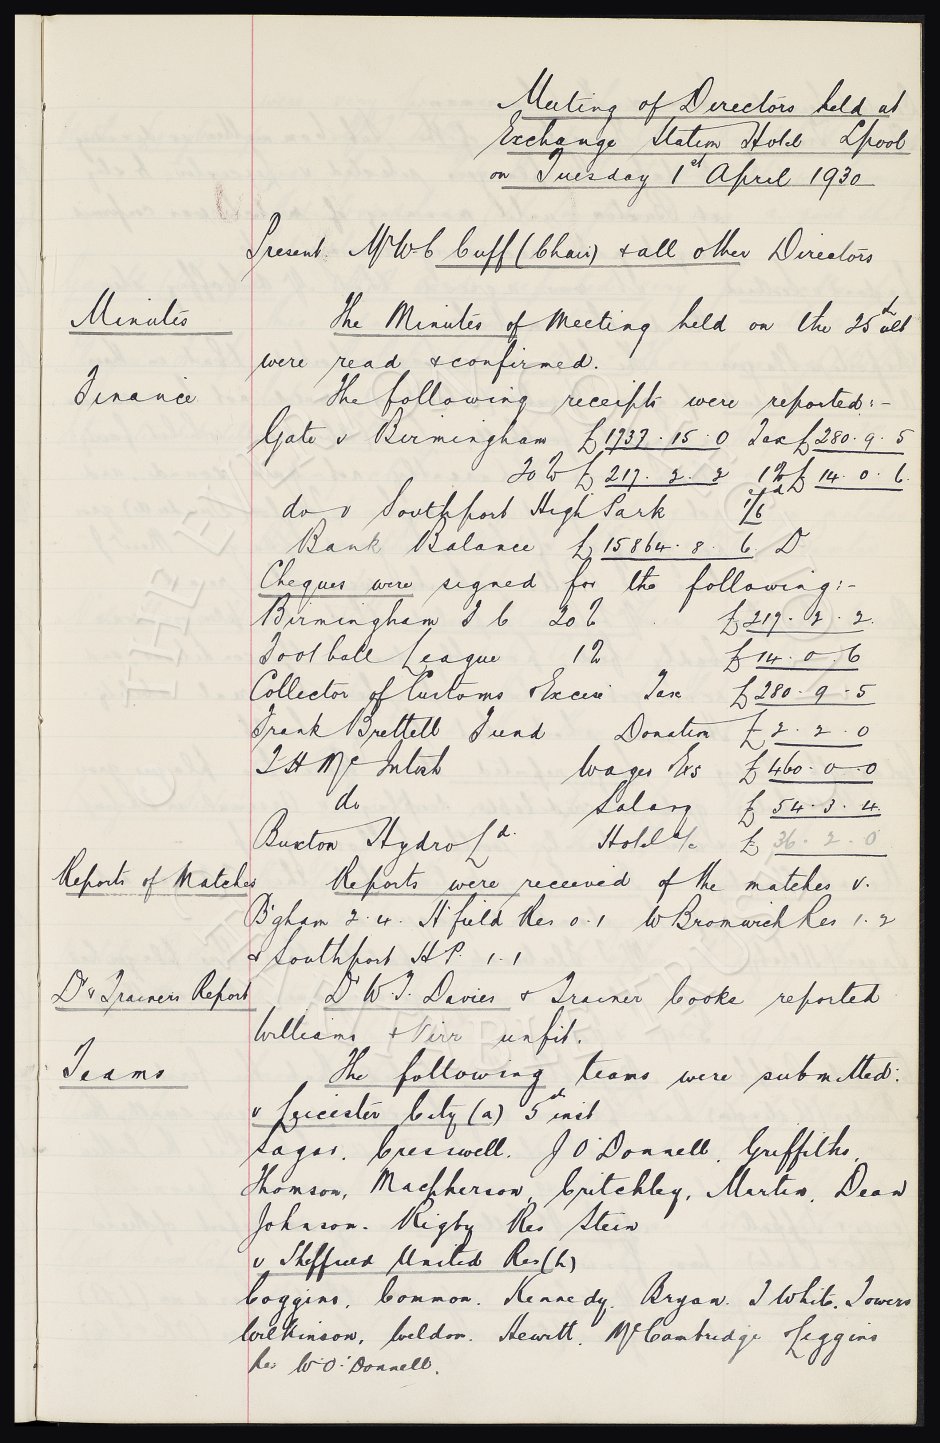 Meeting of Directors held at
Exchange Station Hotel Lpool
on Tuesday 1st April 1930
Present. Mr W. C Cuff (Chair) & all other Directors
Minutes The Minutes of Meeting held on the 25th ult
were read & confirmed.
Finance The following receipts were reported:-
Gate v Birmingham £1737.15.0 Tax £280.9.5
20% £217.2.2 1% £14.0.6.
do v Southport High Park 1/6d
Bank Balance £15864.8.6. D
Cheques were signed for the following:-
Birmingham F C 20% £217.2.2.
Football League 1% £14.0.6
Collector of Customs & Excise Tax £280.9.5
Frank Brettell Fund Donation £2.2.0
T H McIntosh Wages Exs £460.0.0
do Salary £54.3.4.
Buxton Hydro Ld. Hotel a/c £36.2.0
Reports of Matches Reports were received of the matches v.
B'gham 2.4. H'field Res 0.1 W Bromwich Res 1.2
& Southport H P. 1.1
Dr & Trainers Report Dr W. F. Davies & Trainer Cooke reported
Williams & Kirr unfit.
Teams The following teams were submitted:
v Leicester City (a) 5th inst
Sagar. Cresswell. J O'Donnell. Griffiths.
Thomson, Macpherson, Critchley, Martin, Dean
Johnson. Rigby Res Stein
v Sheffield United Res (h)
Coggins. Common. Kennedy. Bryan. T White. Towers
Wilkinson, Weldon. Hewitt. McCambridge Liggins
Res W. O'Donnell.